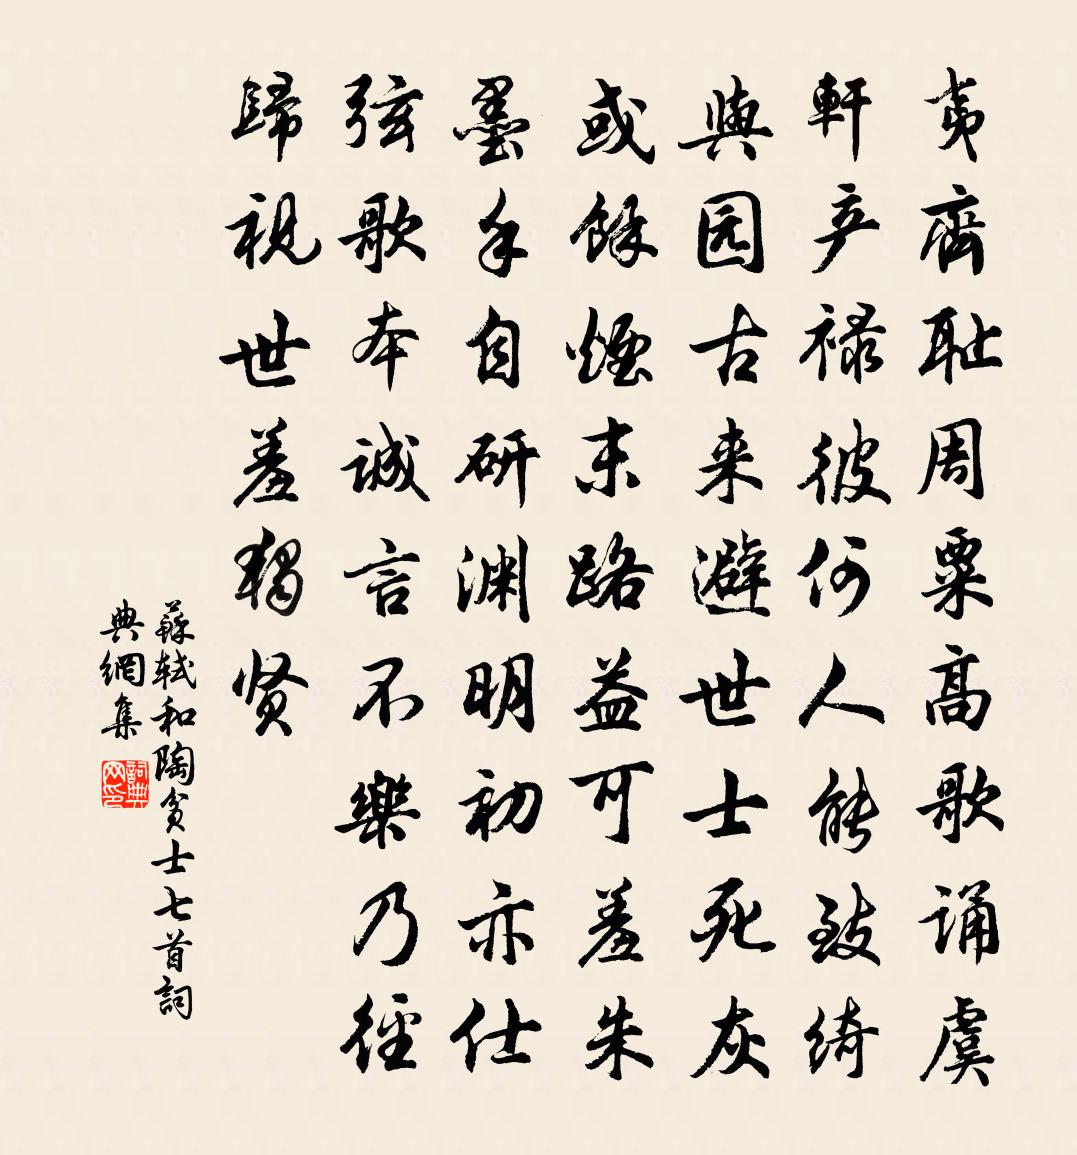 夷齊耻周粟高歌诵虞
軒产禄彼何人能致绮
與园古来避世士死灰
或餘煙末路益可羞朱
墨手自研渊明初亦仕
弦歌本诚言不樂乃徑
歸視世羞獨贤
蘇軾和陶贫士七首詞
典網集
詞典
网印